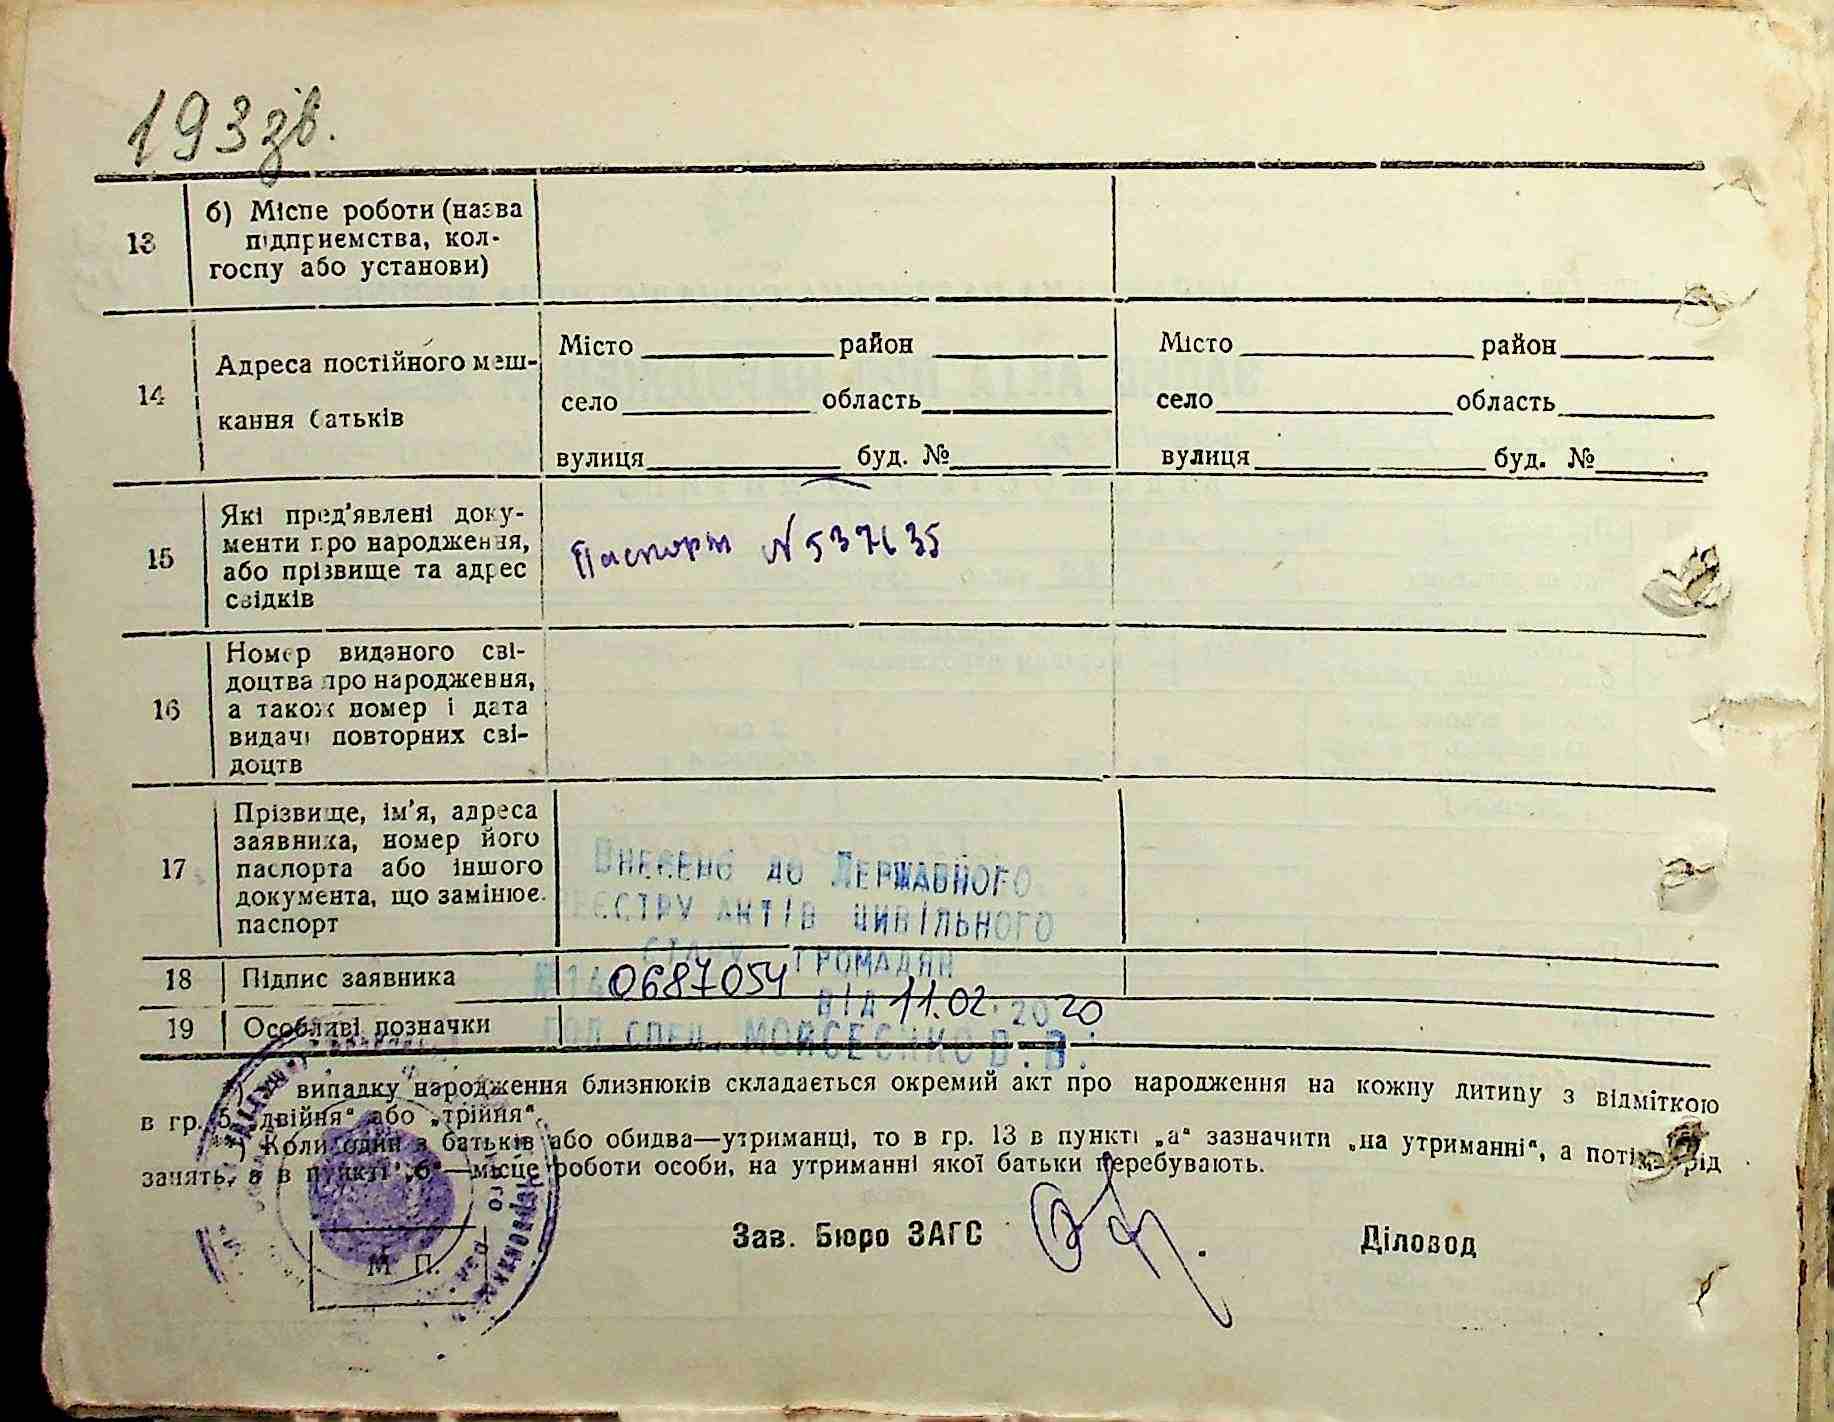 193 зв.
13
б) Місце роботи (назва
підприємства, кол-
госпу або установи)
14
Адреса постійного меш-
кання батьків
Місто район
село область
вулиця буд. №
Місто район
село область
вулиця буд. №
15
Які пред'явлені доку-
менти про народження,
або прізвище та адрес
свідків
Паспорт № 537635
16
Номер виданого сві-
доцтва про народження,
а також номер і дата
видачі повторних сві-
доцтв
17
Прізвище, ім'я, адреса
заявника, номер його
паспорта або іншого
документа, що замінює
паспорт
Внесено до Державного
реєстру актів цивільного
стану громадян
№ 14 0687054
від 11.02.2020
гол спец. Мойсеєнко В.В.
18 Підпис заявника
19 Особливі позначки
випадку народження близнюків складається окремий акт про народження на кожну дитину з відміткою
в гр. 5 „двійня“ або „трійня“.
**) Коли один з батьків або обидва—утриманці, то в гр. 13 в пункті „а“ зазначити „на утриманні“, а потім рід
занять, а в пункті „б“—місце роботи особи, на утриманні якої батьки перебувають.
Зав. Бюро ЗАГС Діловод
М. П.